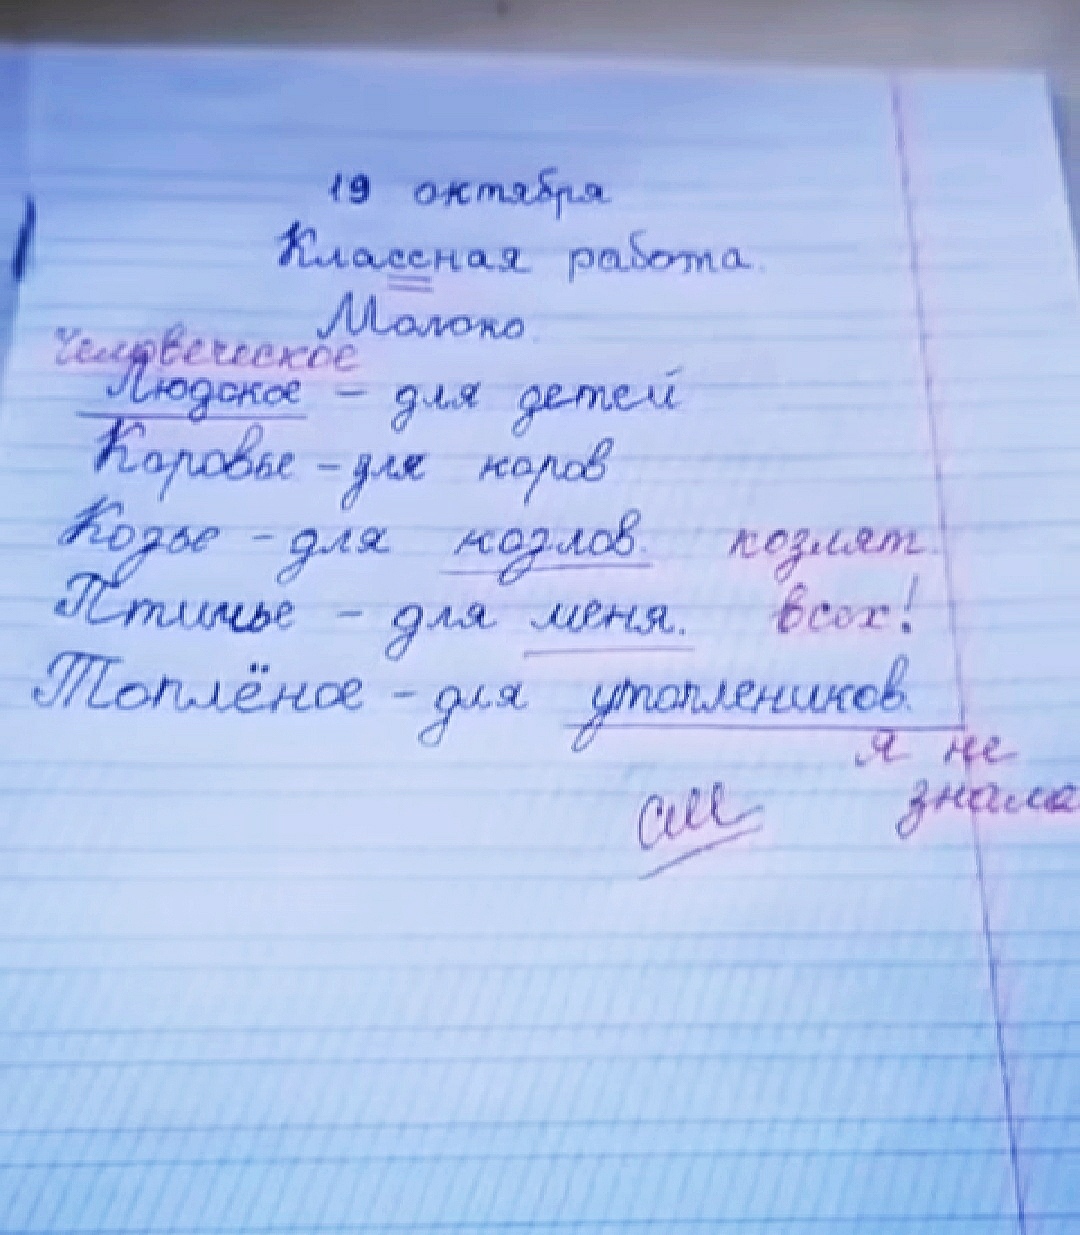 19 октября
Классная работа.
Молоко.
Человеческое
Людское – для детей
Коровье – для коров
Козье – для козлов. козлят.
Птичье – для меня. всех!
Топлёное – для утоплеников.
я не
знала
См